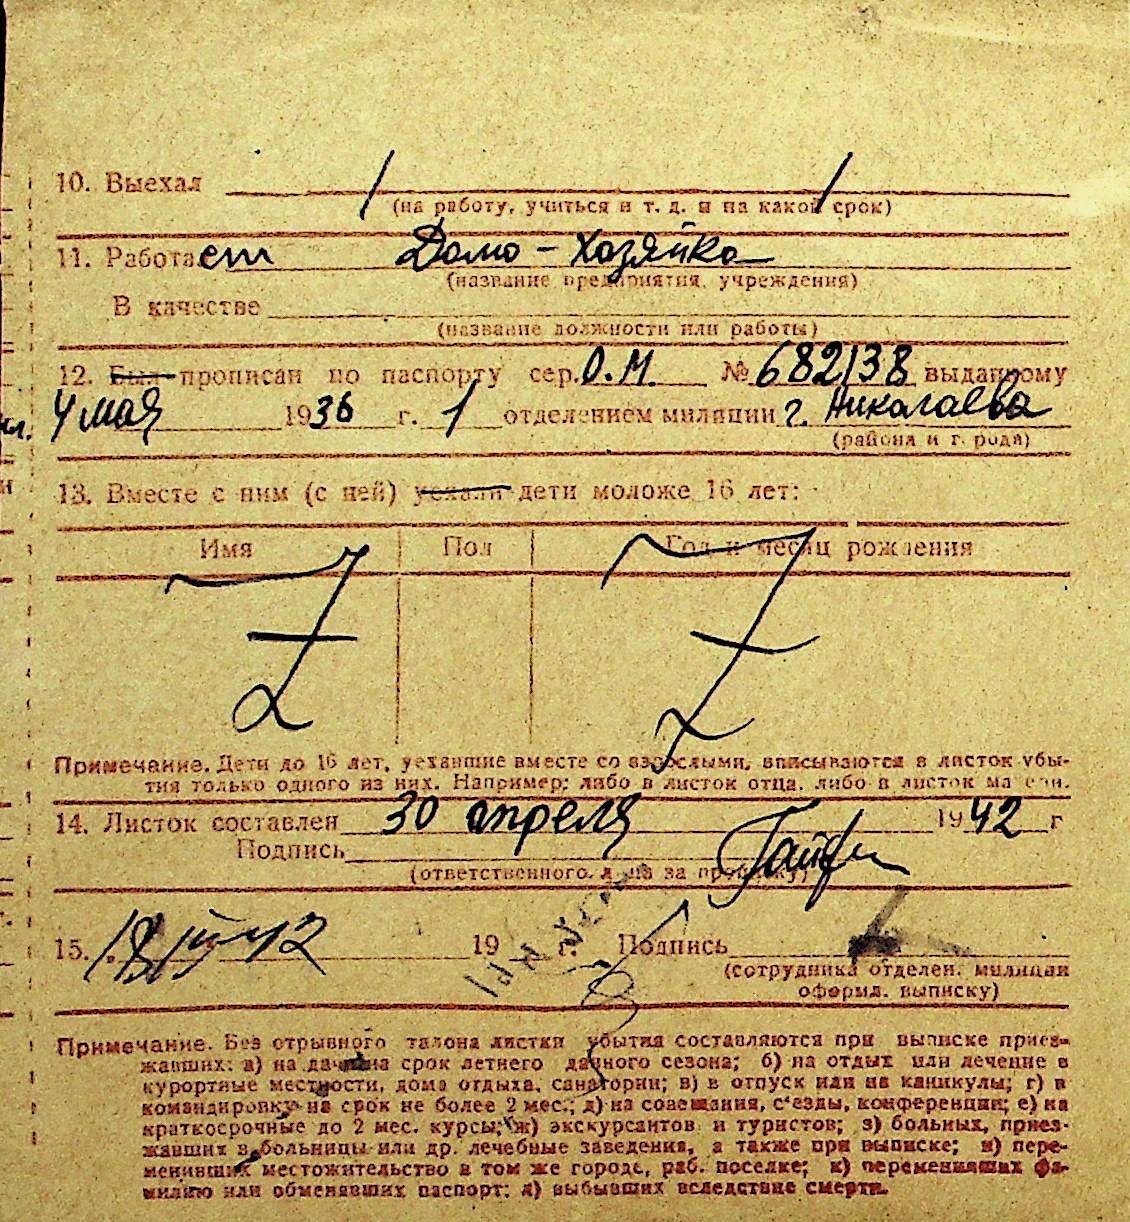 10. Выехал
(на работу, учиться и т. д. и на какой срок)
11. Работает Домо-Хозяйка
(название предприятия, учреждения)
В качестве
(название должности или работы)
12. Был прописан по паспорту сер. О.М. № 682138 выданному
4 мая 1936 г. 1 отделением милиции г. Николаева
(района и города)
13. Вместе с ним (с ней) уехали дети моложе 16 лет:
Имя Пол Год и месяц рождения
Z Z
Примечание. Дети до 16 лет, уехавшие вместе со взрослыми, вписываются в листок убы-
тия только одного из них. Например: либо в листок отца, либо в листок матери.
14. Листок составлен 30 апреля 1942 г
Подпись
(ответственного лица за прописку)
15. 19 г. Подпись
(сотрудника отделен. милиции
оформл. выписку)
Примечание. Без отрывного талона листки убытия составляются при выписке приез-
жавших: а) на дачи на срок летнего дачного сезона; б) на отдых или лечение в
курортные местности, дома отдыха, санатории; в) в отпуск или на каникулы; г) в
командировку на срок не более 2 мес.; д) на совещания, с'езды, конференции; е) на
краткосрочные до 2 мес. курсы; ж) экскурсантов и туристов; з) больных, приез-
жавших в больницы или др. лечебные заведения, а также при выписке; и) пере-
менивших местожительство в том же городе, раб. поселке; к) переменивших фа-
милию или обменявших паспорт; л) выбывших вследствие смерти.